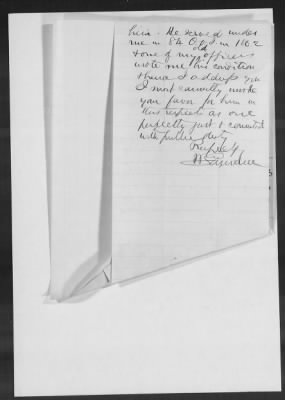 him. He served under
me in 8th O. V. I. in 1862
& one of my old officers
wrote me his condition
& hence I address you
I most earnestly invoke
your favor for him in
this respect as one
perfectly just & consistent
with public duty
Respectfully